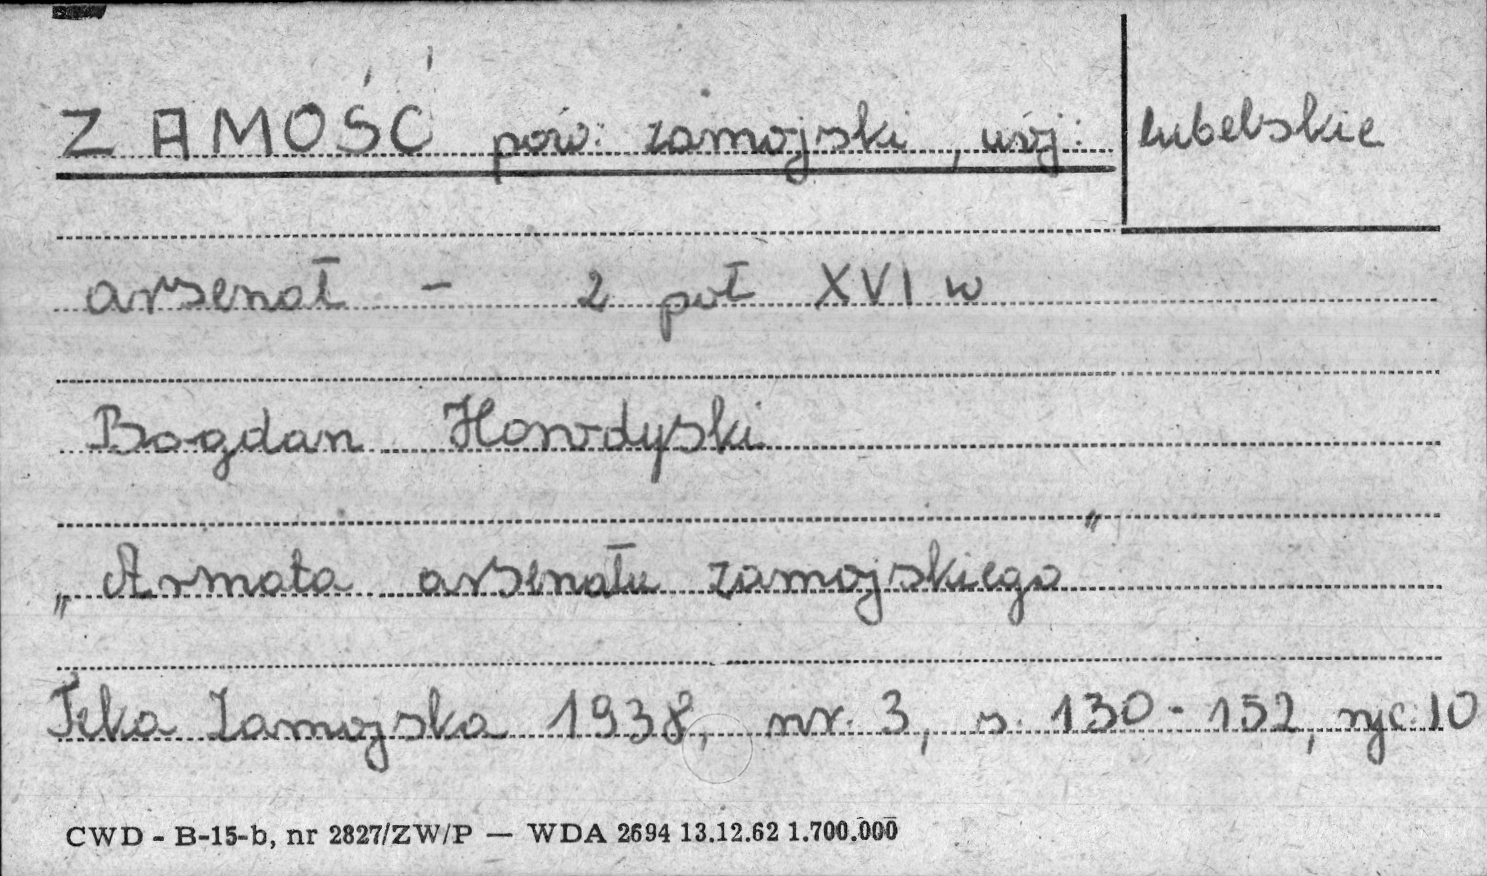 ZAMOŚĆ pow. zamojski, woj. lubelskie
arsenał - 2 poł XVI w
Bogdan Horodyski
„Armata arsenału zamojskiego"
Teka Zamojska 1938, nr. 3, s. 130-152, ryc. 10
CWD - B-15-b, nr 2827/ZW/P — WDA 2694 13.12.62 1.700.000